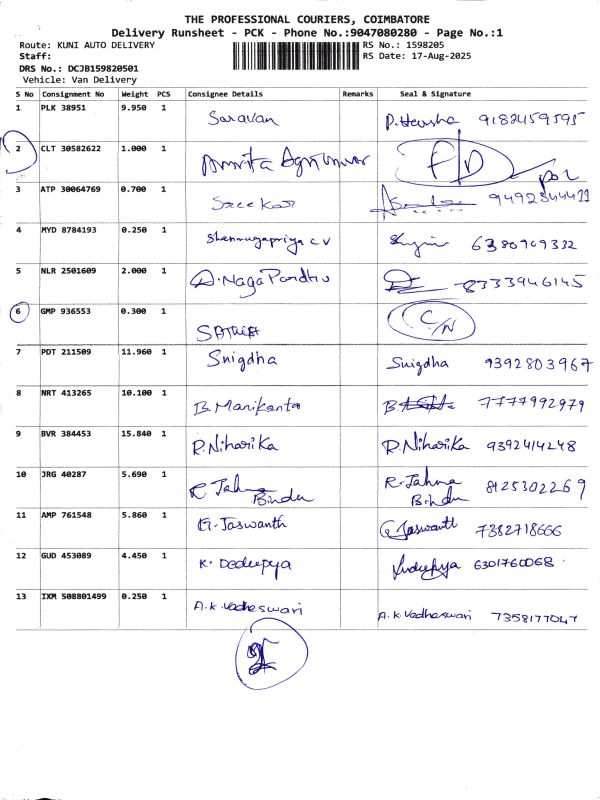 THE PROFESSIONAL COURIERS, COIMBATORE
Delivery Runsheet - PCK - Phone No.:9047080280 - Page No.:1
Route: KUNI AUTO DELIVERY RS No.: 1598205
Staff: RS Date: 17-Aug-2025
DRS No.: DCJB159820501
Vehicle: Van Delivery
S No Consignment No Weight PCS Consignee Details Remarks Seal & Signature
1 PLK 38951 9.950 1 Saravan P. Harsha 9182459595
2 CLT 30582622 1.000 1 Amrita F/D
3 ATP 30064769 0.700 1 Sreekar 9492844411
4 MYD 8784193 0.250 1 Shanmugapriya C V 6380909332
5 NLR 2501609 2.000 1 D. Naga Pardhu 8333946145
6 GMP 936553 0.300 1 C/N
7 PDT 211509 11.960 1 Snigdha Snigdha 9392803967
8 NRT 413265 10.100 1 B. Manikanta 7777992979
9 BVR 384453 15.840 1 R. Niharika R. Niharika 9392414248
10 JRG 40287 5.690 1 R Jahna Bindu R. Jahna Bindu 8125302269
11 AMP 761548 5.860 1 G. Jaswanth G Jaswanth 7382718666
12 GUD 453089 4.450 1 K. Dedeepya 6301760068
13 IXM 508801499 0.250 1 A.K. Vadheswari A.K Vadheswari 7358177047